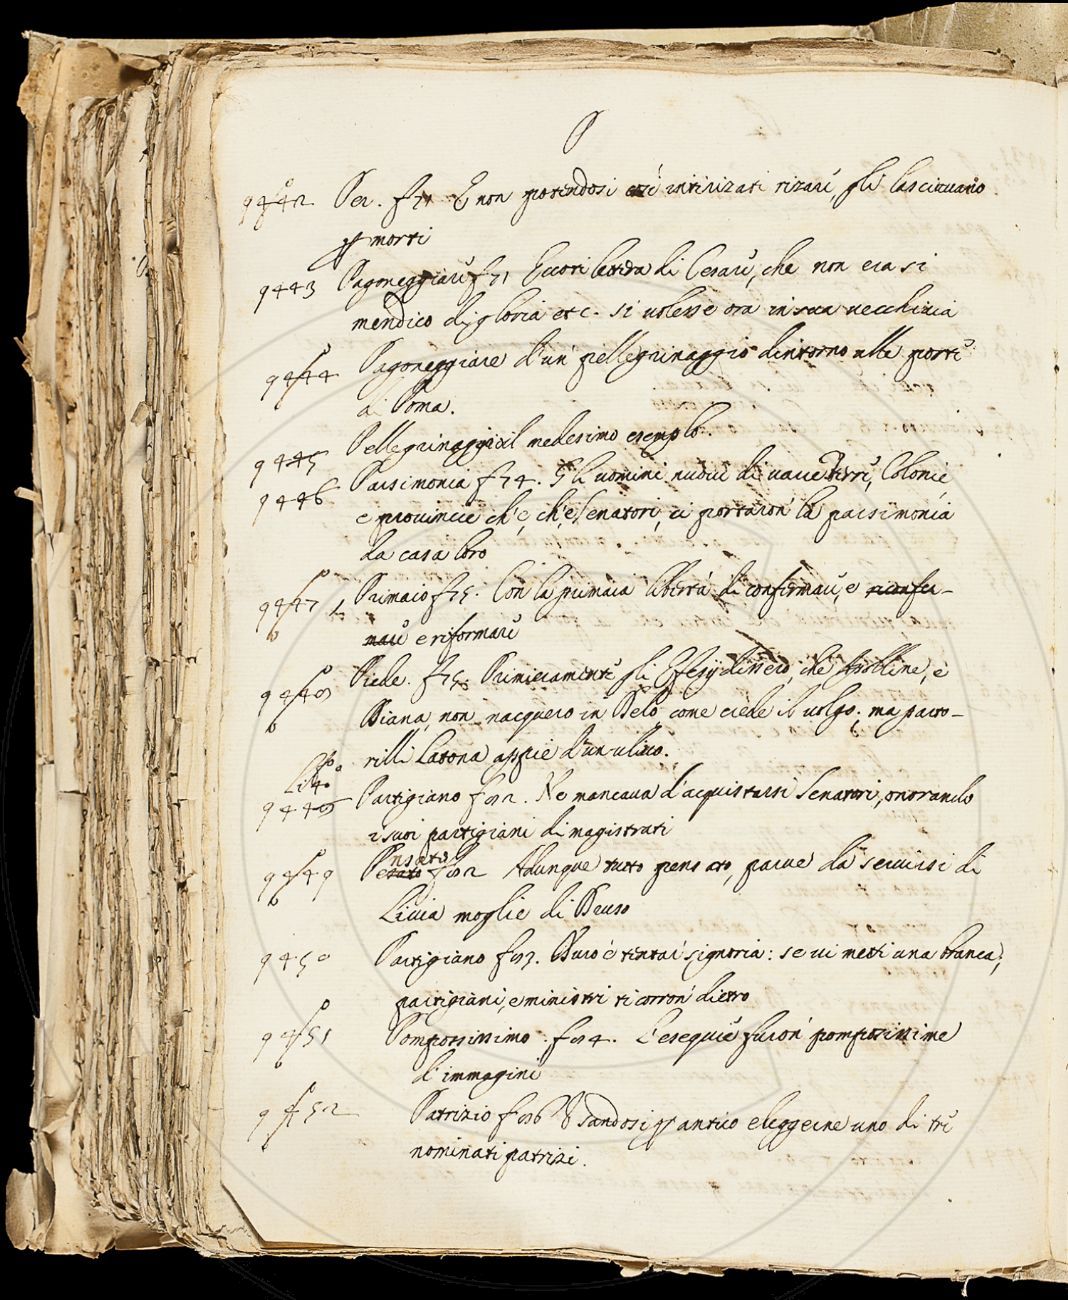 P
9442 Per. f 71 E non potendosi così intirizati rizare, gli lasciavano
p morti
9443 Pagoneggiare f 71 Eccoti letizia di Cesare, che non era si
mendico di gloria etc. si volesse ora in sua vecchizia
9444 Pagoneggiare d'un pellegrinaggio dintorno alle porte
di Roma.
9445 Pellegrinaggio il medesimo esemplo.
9446 Parsimonia f 74. Gli uomini nuovi di varie Terre, Colonie,
e provincie ch'e, ch'e Senatori, ci portaron la parsimonia
da casa loro
9447 Primaio f 75. Con la primaia libertà di confirmare, e
e riformare
9448 Piede. f 75. Primieramente gli Efesij dissero, che Apolline, e
Diana, non nacquero in Delo, come crede il volgo; ma parto-
rilli Latona appie d'un ulivo.
9448 Partigiano f 92. Ne mancava d'acquistarsi Senatori, onorando
i suoi partigiani di magistrati
9449 Pensato f 92 Adunque tutto pensato, parve da servirsi di
Livia moglie di Druso
9450 Partigiano f 93. Duro è tentar signoria: se vi metti una branca,
partigiani, e ministri ti corron dietro
9451 Pomposissimo f 94. L'esequie furon pomposissime
d'immagini
9452 Patrizio f 96 Usandosi p antico eleggerne uno di tre
nominati patrizi.